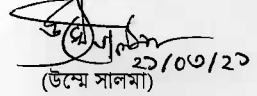 ২১/০৩/২১
(উম্মে সালমা)